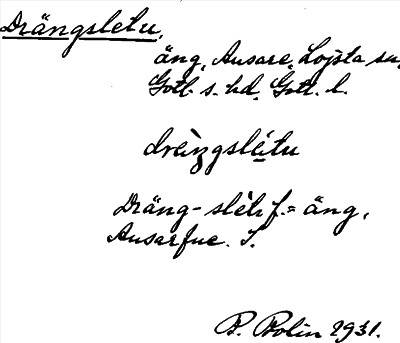 Drängsletu,
äng, Ausare, Lojsta sn,
Gotl. s. hd, Gotl. l.
drèŋgslétu
Dräng-slèti f. = äng,
B. Bolin 1931.